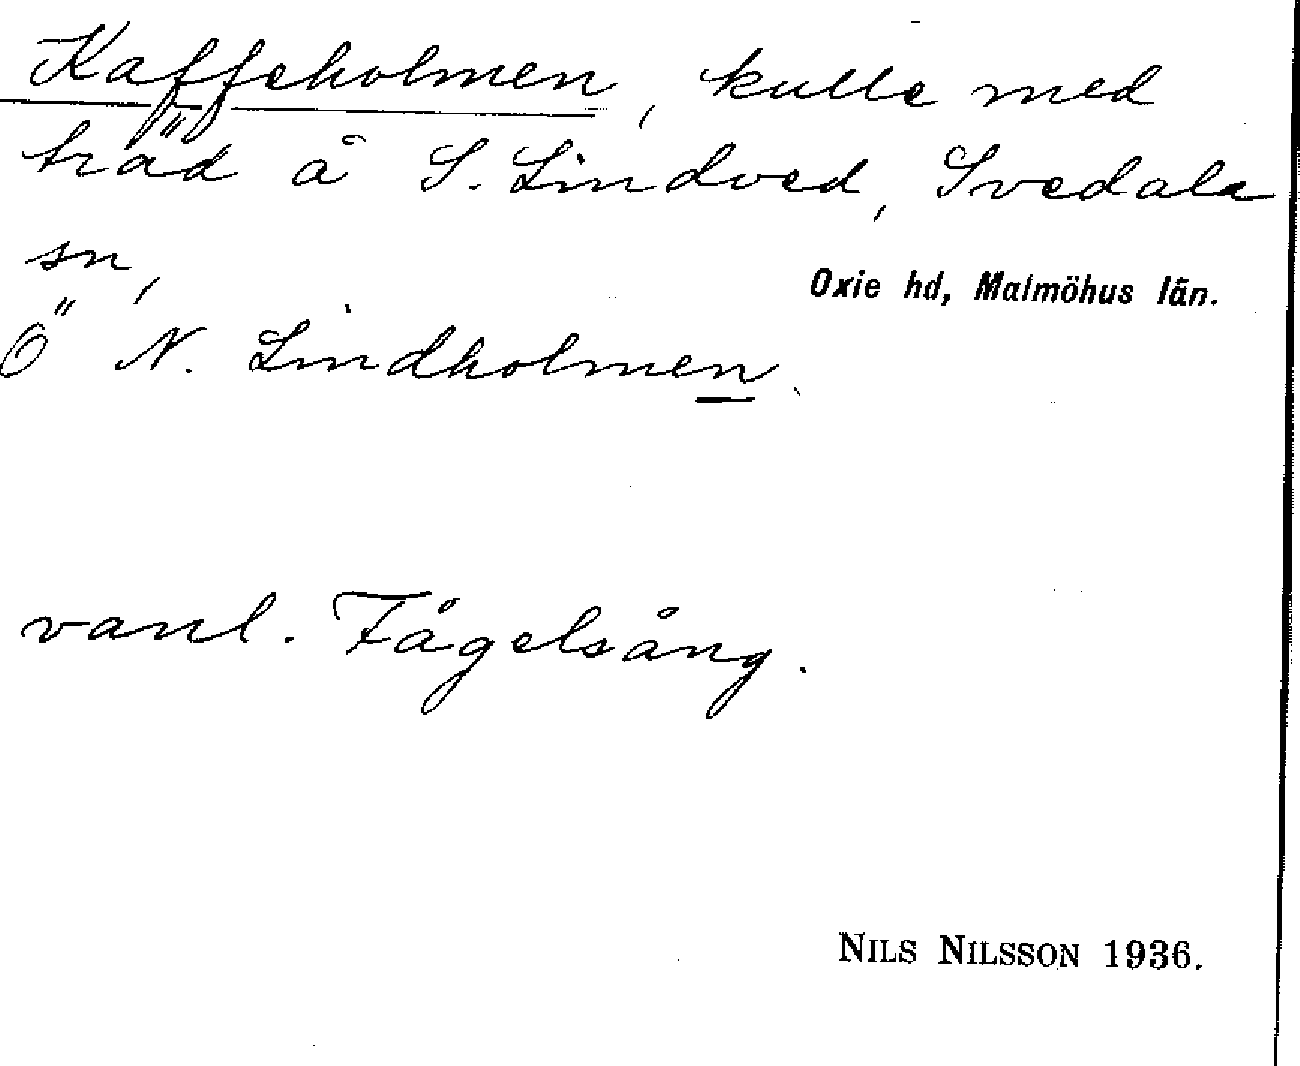 Kaffeholmen, kulle med
träd å S. Lindved, Svedala
sn,
Oxie hd, Malmöhus län.
Ö N. Lindholmen.
vanl. Fågelsång.
NILS NILSSON 1936.